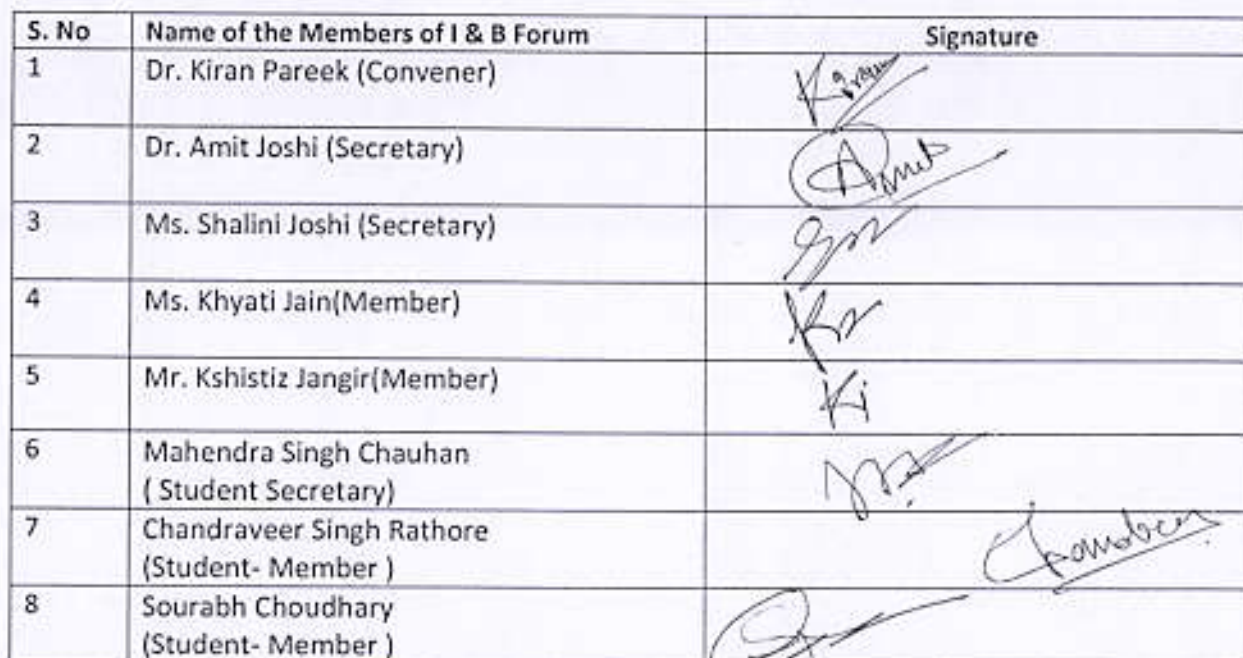 S. No Name of the Members of I & B Forum Signature
1 Dr. Kiran Pareek (Convener) Kiran
2 Dr. Amit Joshi (Secretary) Amit
3 Ms. Shalini Joshi (Secretary)
4 Ms. Khyati Jain(Member)
5 Mr. Kshistiz Jangir(Member) Kj
6 Mahendra Singh Chauhan
( Student Secretary)
7 Chandraveer Singh Rathore
(Student- Member )
8 Sourabh Choudhary
(Student- Member )